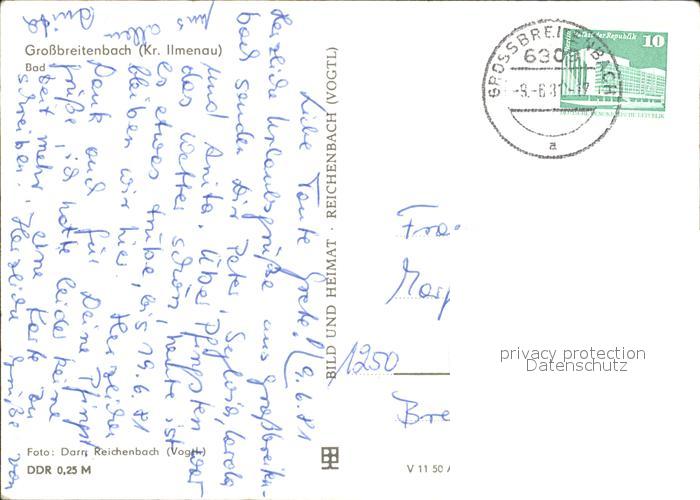 Großbreitenbach (Kr. Ilmenau)
Bad
GROSSBREITENBACH
630
-9.-6.81-17
a
Palast der Republik
10
DEUTSCHE DEMOKRATISCHE REPUBLIK
BILD UND HEIMAT · REICHENBACH (VOGTL)
9.6.81
Liebe Tante Grete!
Herzliche Urlaubsgrüße aus Großbreiten-
bach senden Dir Peter, Sylvia, Carola
und Anita. Über Pfingsten war
das Wetter schön, heute ist
es etwas trübe, bis 19.6.81
bleiben wir hier. Herzlichen
Dank auch für Deine Pfingst
grüße, ich hatte leider keine
Zeit mehr, eine Karte zu
schreiben. Herzliche Grüße von
uns allen
Fra
Mar
1250
Bre
privacy protection
Datenschutz
Foto: Darr, Reichenbach (Vogtl)
DDR 0,25 M
V 11 50